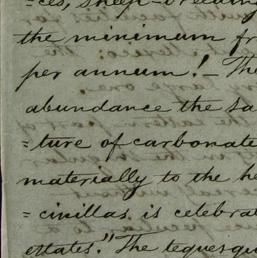 =ces, sheep-breeding
the minimum fr
per annum! - The
abundance the sa
=ture of carbonate
materially to the he
=cinillas is celebrat
estates." The tequesqu